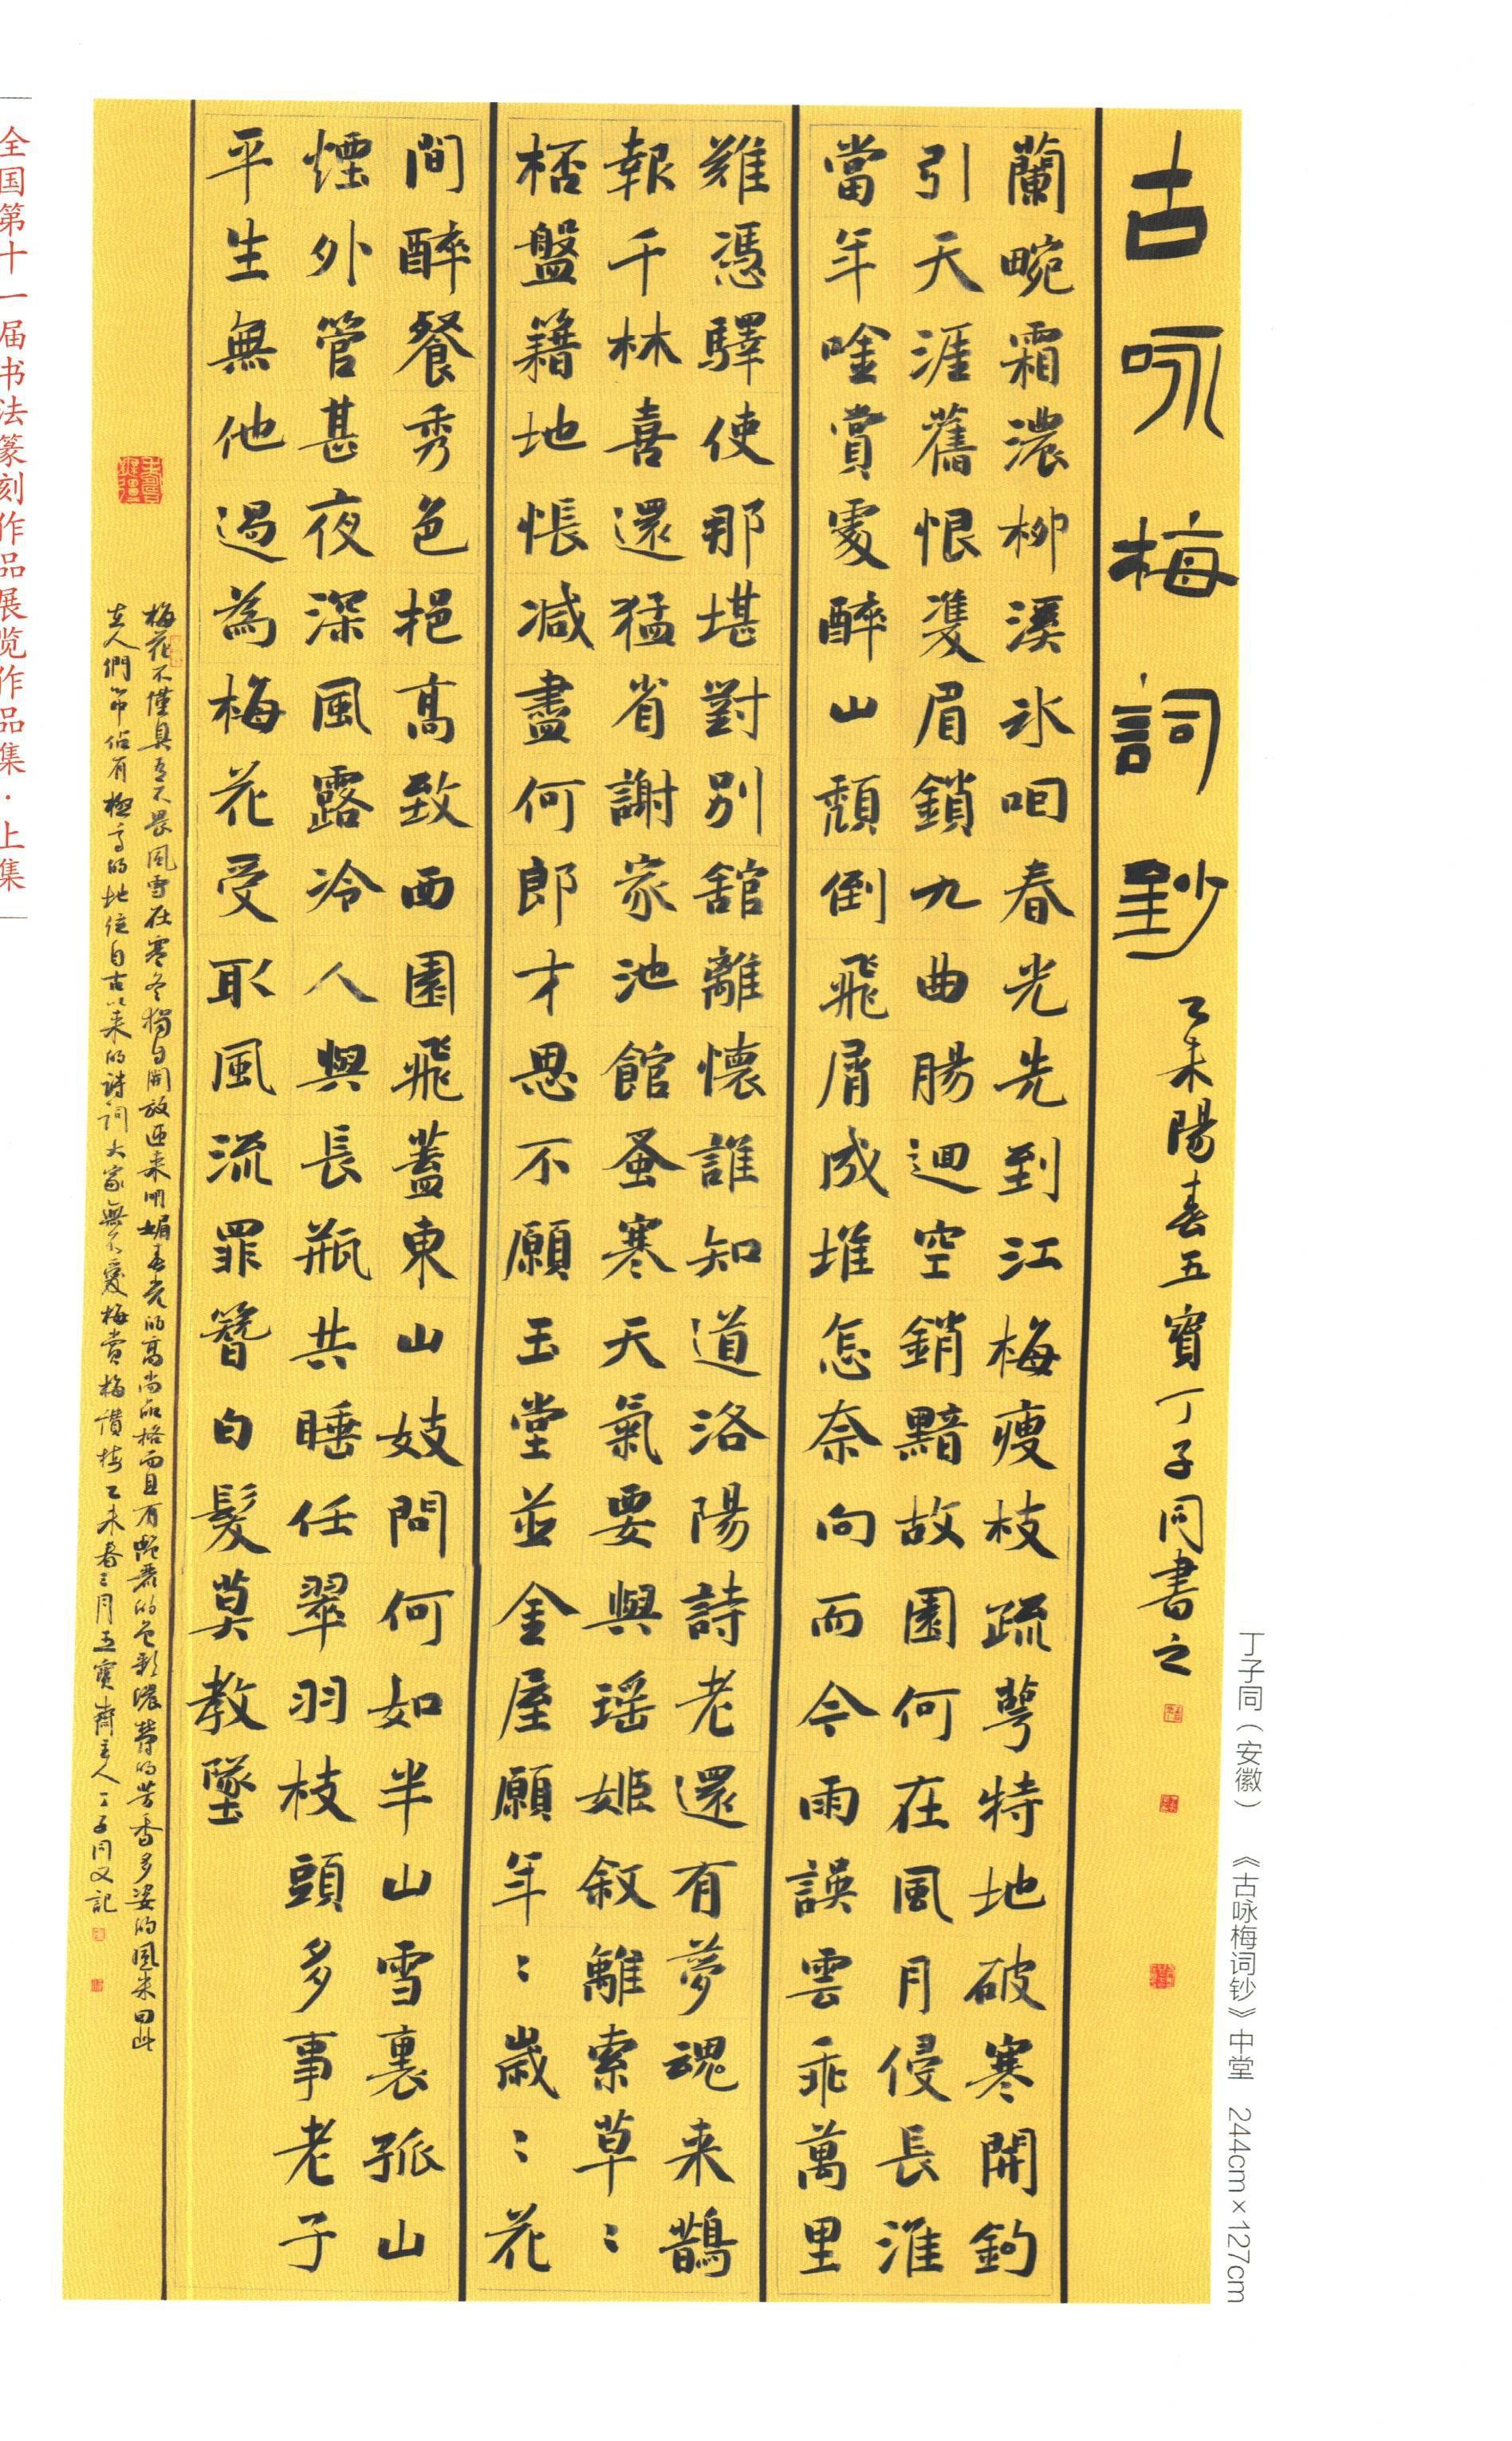 古咏梅詞鈔 乙未陽春五寶丁子同書之
蘭畹霜濃柳溪冰咽春光先到江梅瘦枝疏萼特地破寒開鈎
引天涯舊恨雙眉鎖九曲腸迴空銷黯故園何在風月侵長淮
當年唫賞處醉山頹倒飛屑成堆怎奈向而今雨誤雲乖萬里
難憑驛使那堪對别舘離懷誰知道洛陽詩老還有夢魂来鵲
報千林喜還猛省謝家池館蚤寒天氣要與瑶姬敘離索草〻
桮盤籍地悵减盡何郎才思不願玉堂並金屋願年〻歲〻花
間醉餐秀色挹高致西園飛蓋東山妓問何如半山雪裏孤山
煙外管甚夜深風露冷人與長瓶共睡任翠羽枝頭多事老子
平生無他過為梅花受取風流罪簪白髮莫教墜
梅花不僅具有不畏風雪在寒冬獨自開放迎来明媚春光的高尚品格而且有艷麗的色彩濃鬱的芳香多姿的風采因此
在人們中佔有極高的地位自古以来的詩詞大家無不愛梅賞梅讚梅乙未春三月五寶齋主人丁子同又記
丁子同（安徽） 《古咏梅词钞》中堂 244cm×127cm
全国第十一届书法篆刻作品展览作品集·上集